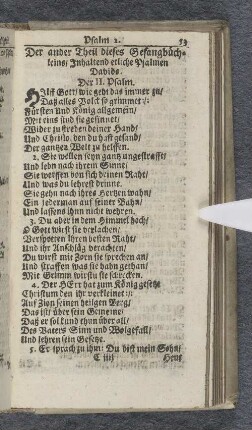 Psalm 2. 53
Der ander Theil dieses Gesangbüch-
leins/ Inhaltend etliche Psalmen
Davids.
Der II. Psalm.
HIlff Gott/ wie geht das immer zu/
Daß alles Volck so grimmet/:
Fürsten und König allgemein/
Mit eins sind sie gesinnet/
Wider zu streben deiner Hand/
Und Christo/ den du hast gesand/
Der gantzen Welt zu helffen.
2. Sie wellen seyn gantz ungestrafft/
Und lebn nach ihrem Sinne/
Sie werffen von sich deinen Raht/
Und was du lehrest drinne.
Sie gehn nach ihres Hertzen wahn/
Ein jederman auf seiner Bahn/
Und lassens ihm nicht wehren.
3. Du aber in dem Himmel hoch/
O Gott wirst sie verlachen/
Verspotten ihren besten Raht/
Und ihr Anschläg verachten/
Du wirst mit Zorn sie sprechen an/
Und straffen was sie habn gethan/
Mit Grimm wirstu sie schrecken.
4. Der HErr hat zum König gesetzt
Christum den ihr verkleinet/:
Auf Zion seinen heilgen Berg/
Das ist/ über sein Gemeine/
Daß er sol kund thun über all/
Des Vaters Sinn und Wolgefall/
Und lehren sein Gesetze.
5. Er sprach zu ihm: Du bist mein Sohn/
C iiij Heut